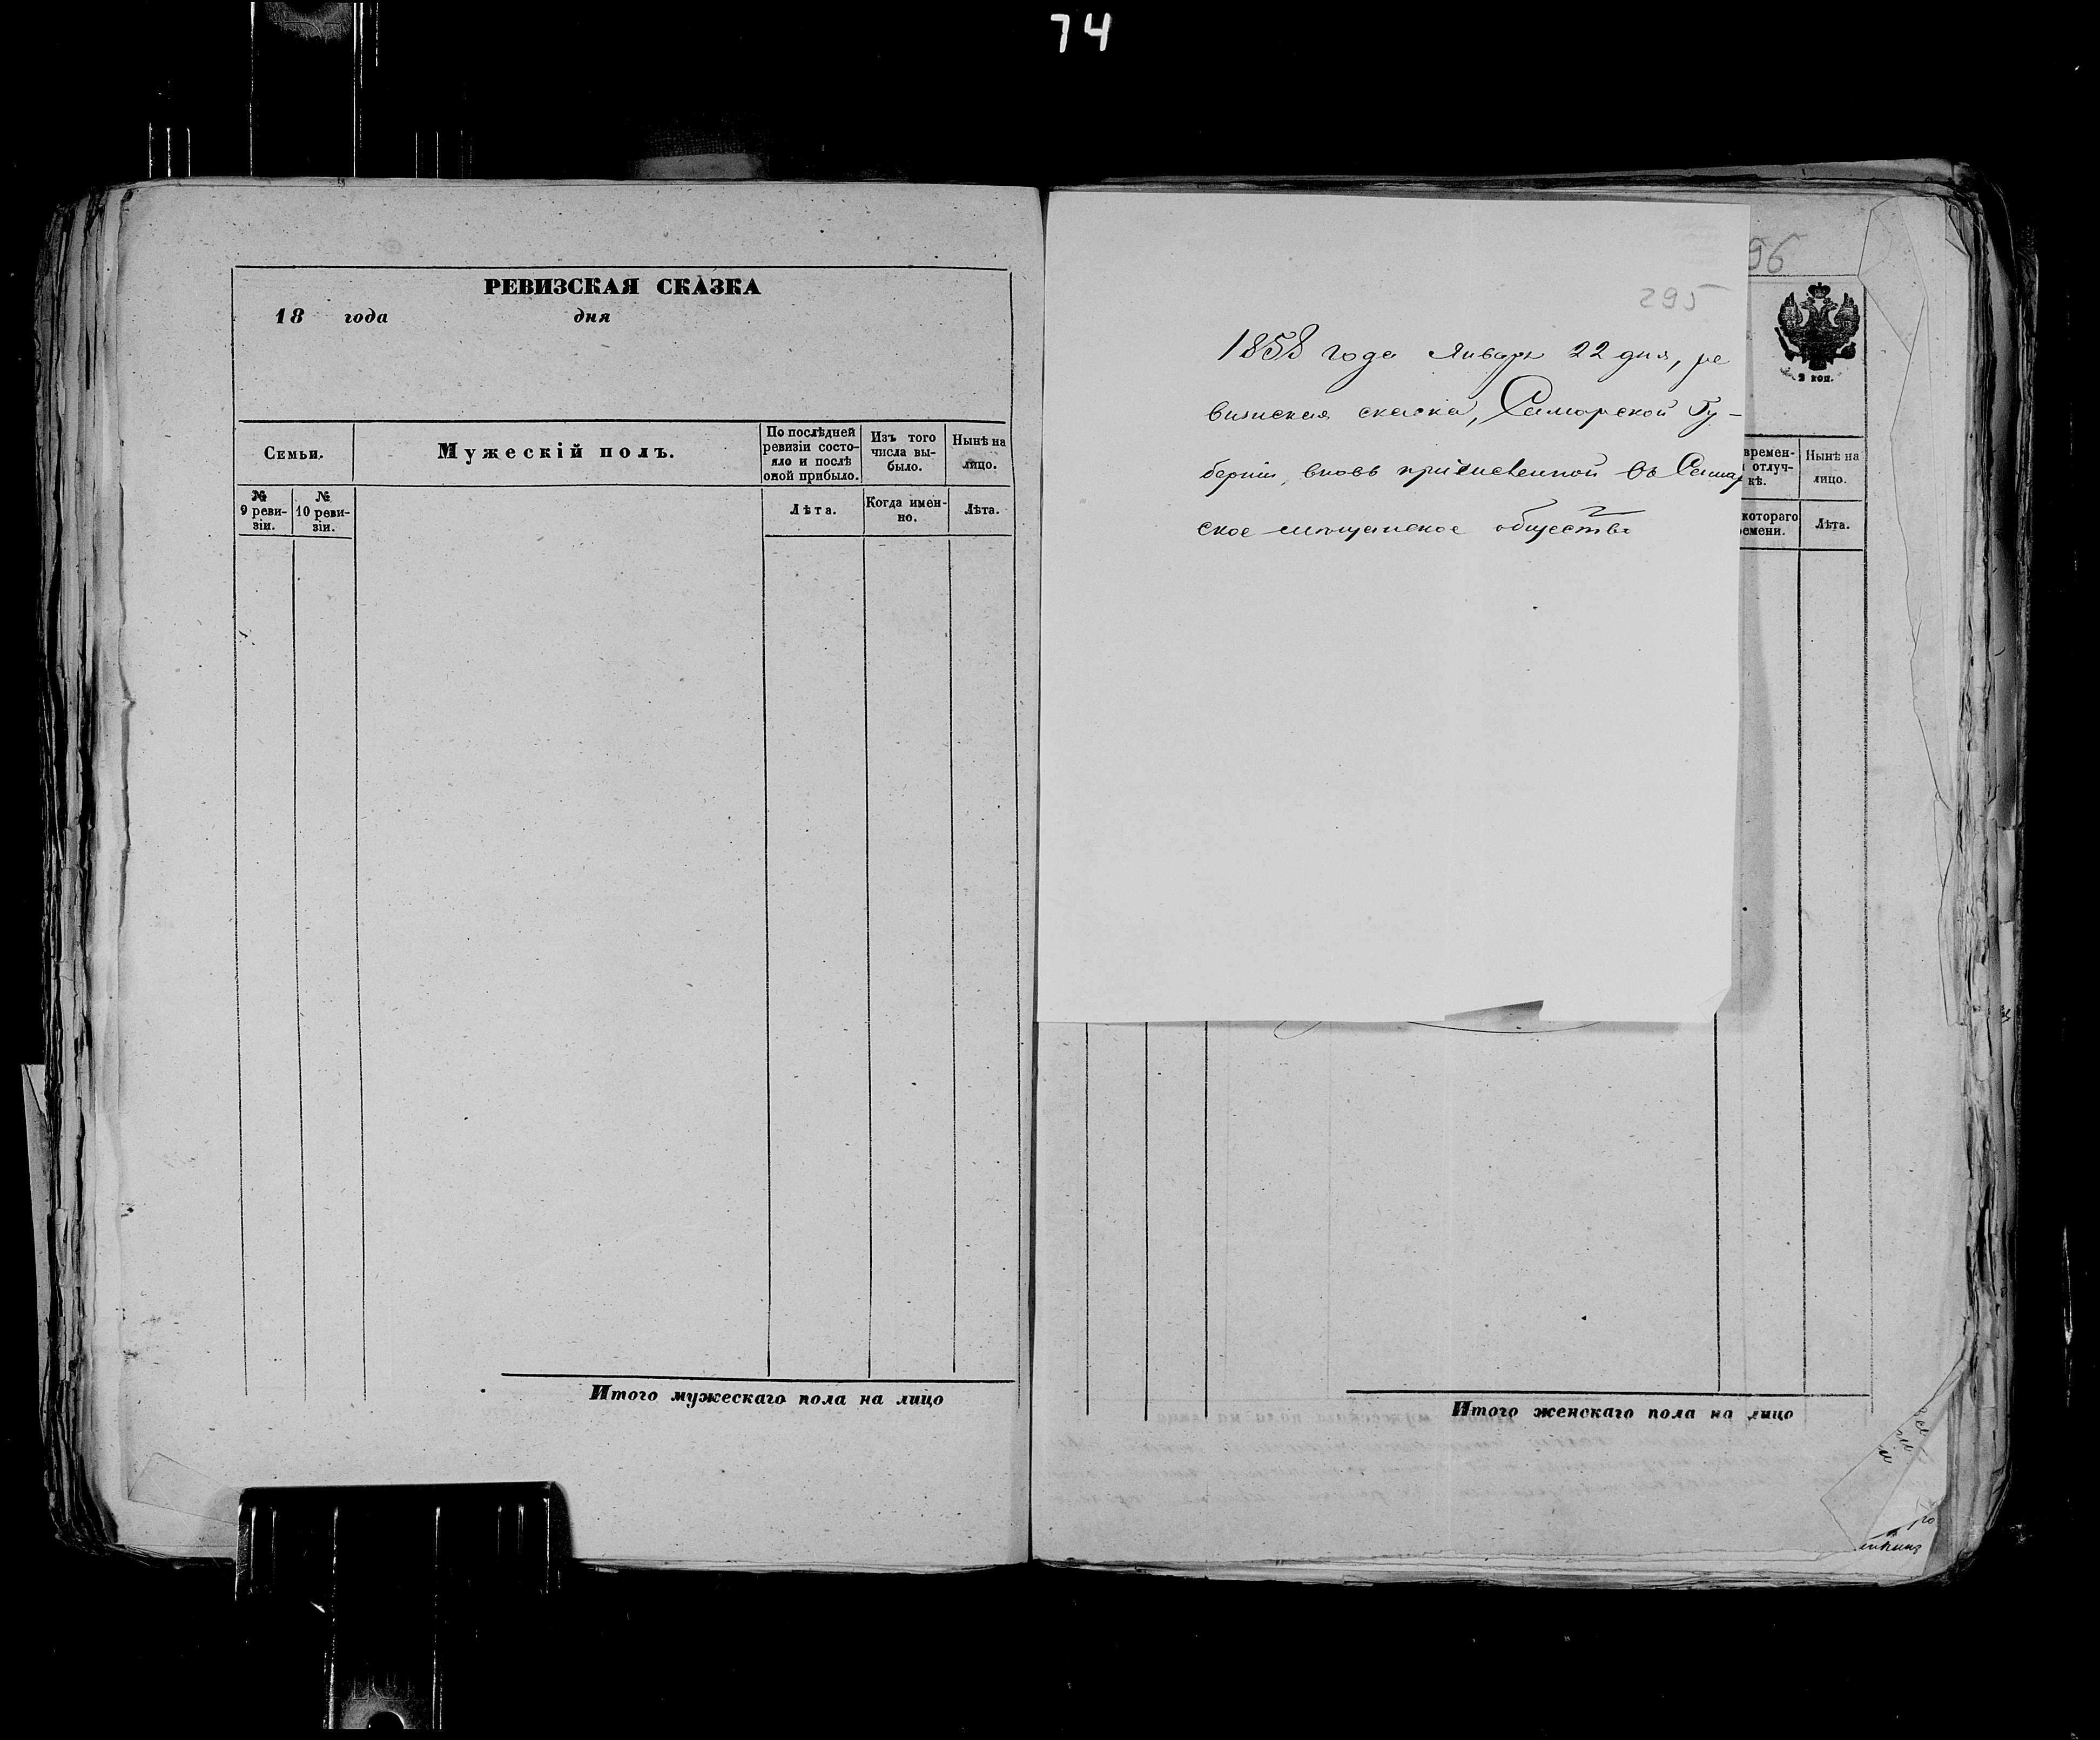 74
РЕВИЗСКАЯ СКАЗКА
18 года дня
Семьи.
Мужескій полъ.
По послѣдней
ревизіи состо-
яло и послѣ
оной прибыло.
Изъ того
числа вы-
было.
Нынѣ на
лицо.
№
9 реви-
зіи.
№
10 реви-
зіи.
Лѣта.
Когда имен-
но.
Лѣта.
Итого мужескаго пола на лицо
96
295
1858 года Января 22 дня, ре
визская сказка, Самарской Гу-
берніи, вновь причисленной въ Самар
ское мещанское общество
2 коп.
времен-
отлуч-
кѣ.
Нынѣ на
лицо.
котораго
емени.
Лѣта.
Итого женскаго пола на лицо